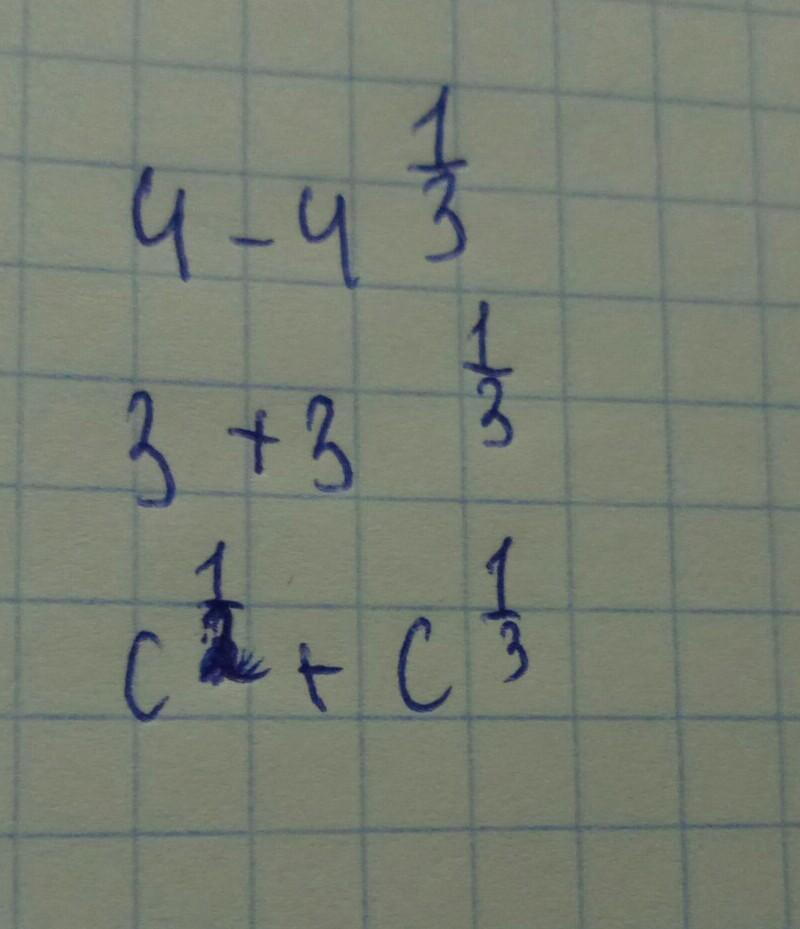 4 - 4^(1/3)
3 + 3^(1/3)
c^(1/2) + c^(1/3)